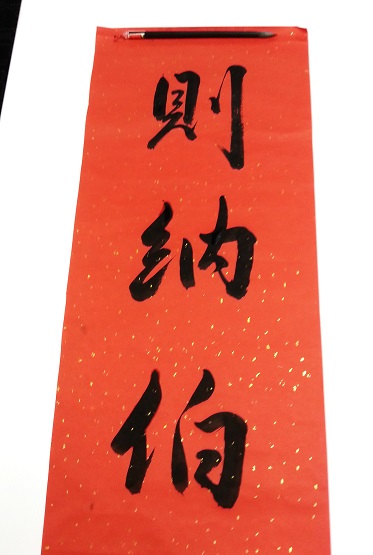 則納伯